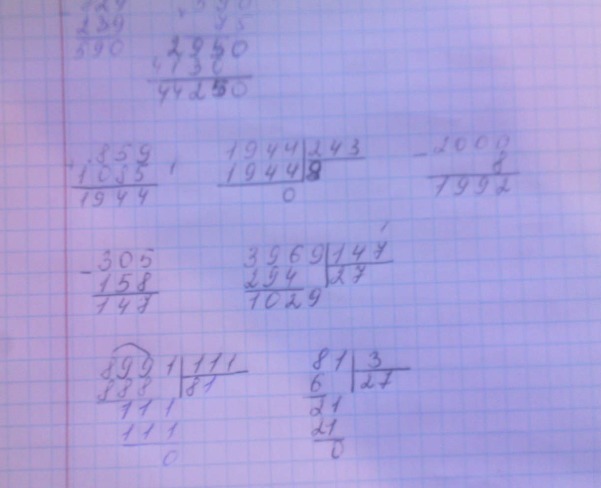 - 829
239
590
590
75
2950
4130
44250
+ 859
1085
1944
1944 243
1944 8
0
- 2000
8
1992
- 305
158
147
3969 147
294 27
1029
8991 111
888 81
111
111
0
81 3
6 27
21
21
0